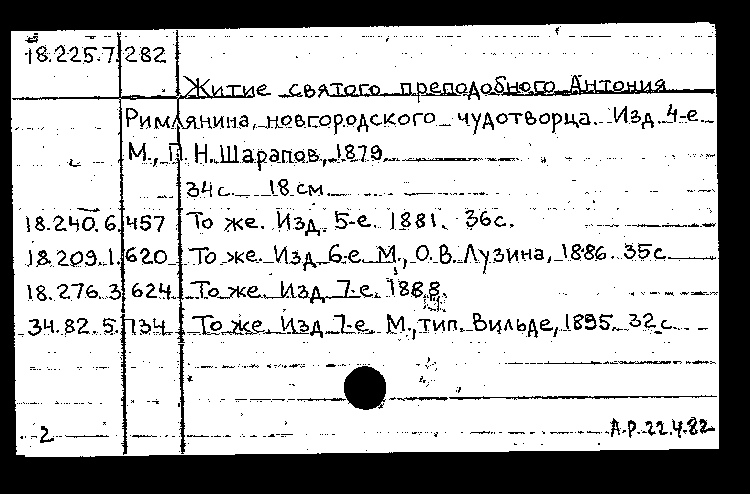 18.225.7.282
Житие святого преподобного Антония
Римлянина, новгородского чудотворца. Изд. 4-е
М., П. Н. Шарапов, 1879
34 с. 18 см.
18.240.6.457 То же. Изд. 5-е. 1881. 36 с.
18.209.1.620 То же. Изд. 6-е. М., О. В. Лузина, 1886. 35 с
18.276.3.624 То же. Изд. 7-е. 1888.
34.82.5.134 То же. Изд. 7-е. М., тип. Вильде, 1895. 32 с.
2 А.Р. 22.4.82